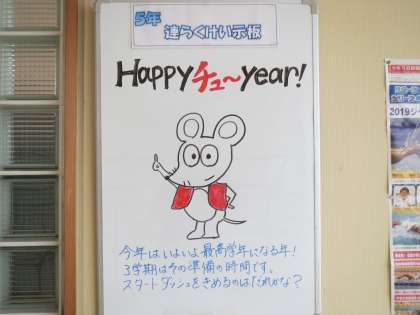 5年
連らくけい示板
Happy チュ〜 year!
今年はいよいよ最高学年になる年!
3学期はその準備の時間です。
スタートダッシュをきめるのはだれかな?
2019